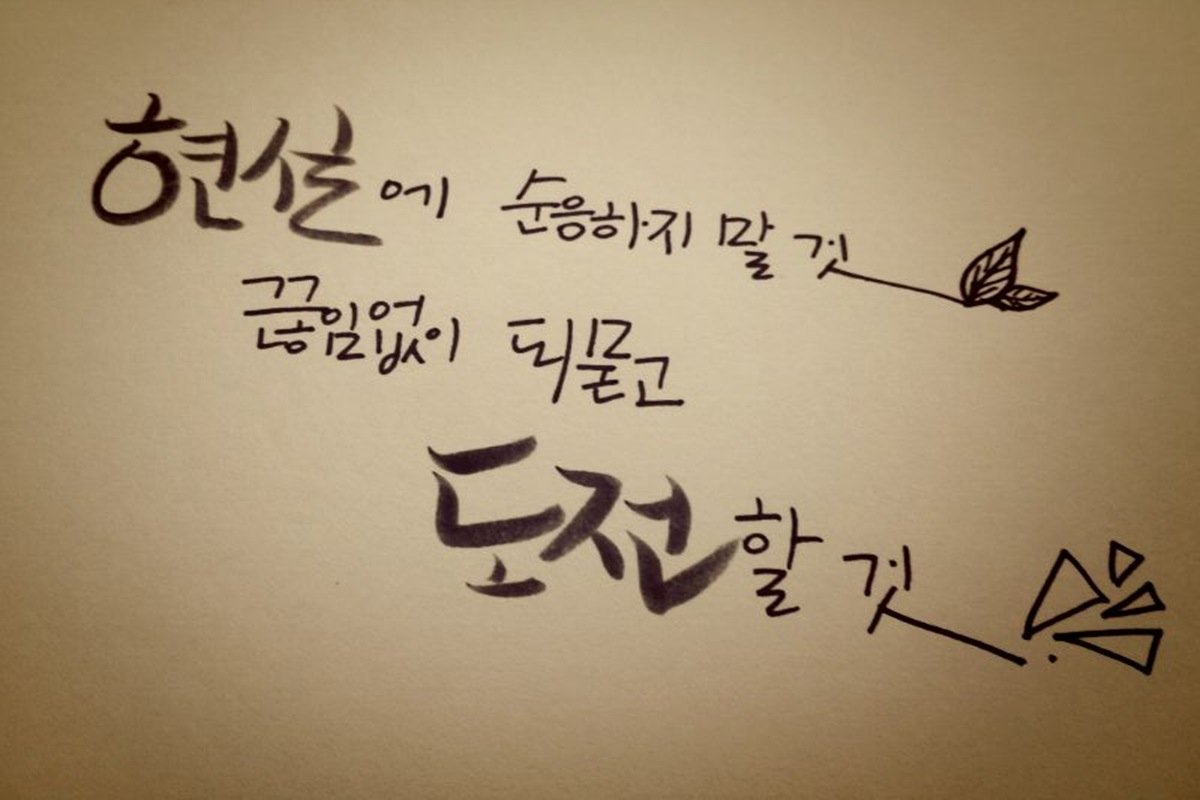 현실에 순응하지 말 것
끊임없이 되묻고
도전할 것